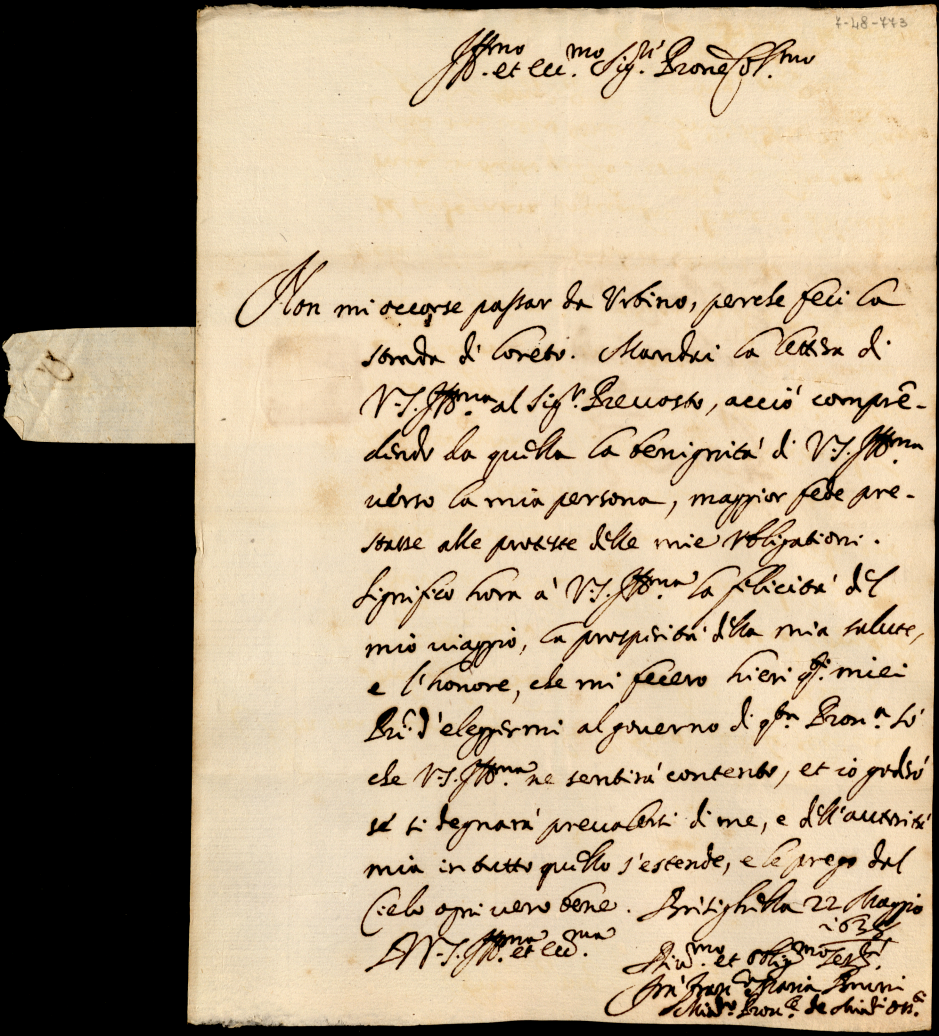 7-48-773
Ill.mo et ecc.mo Sig.r Prone Col.mo
Non mi occorse passar da Urbino, perche feci la
strada di Loreto. Mandai la lettera di
V.S. Ill.ma al Sig.r Prevosto, acciò compren-
dendo da quella la benignità di V.S. Ill.ma
verso la mia persona, maggior fede pre-
stasse alle proteste delle mie obligationi.
Significo hora à V.S. Ill.ma la felicità del
mio viaggio, la prosperità della mia salute,
e l'honore, che mi fecero hieri q.ti miei
Pri d'eleggermi al governo di q.ta Prov.a Sò
che V.S. Ill.ma ne sentirà contento, et io goderò
se si degnarà prevalersi di me, e dell'autorità
mia in tutto quello s'estende, e le prego dal
Cielo ogni vero bene. Brisighella 22 Maggio
Di V.S. Ill.ma et ecc.ma
et oblig.mo
Fra Fran.co Maria
Prov.le de